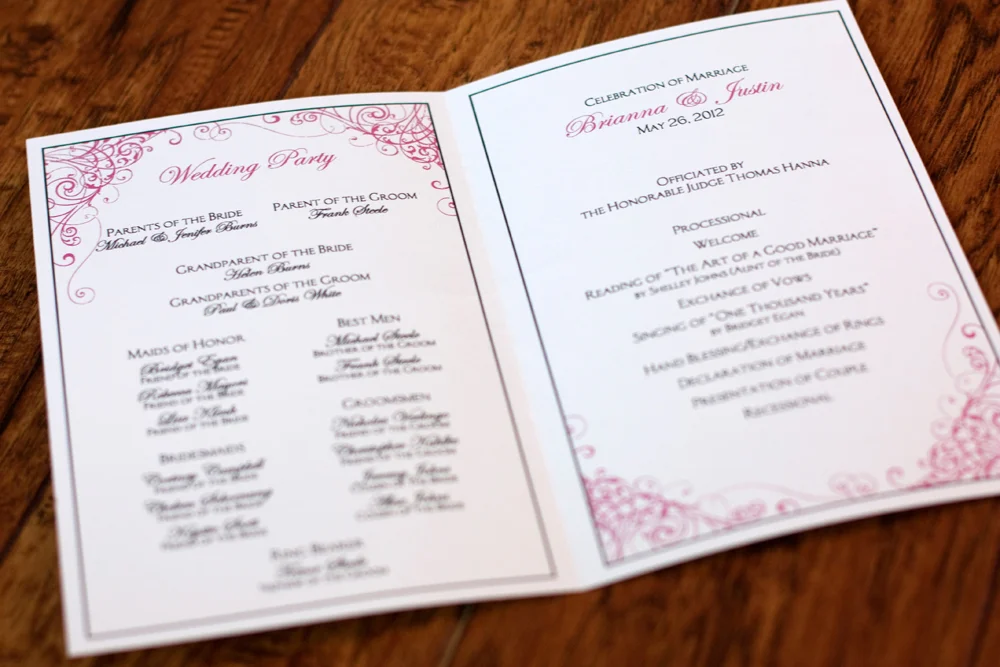 Wedding Party
PARENTS OF THE BRIDE
Michael & Jenifer Burns
PARENT OF THE GROOM
Frank Steele
GRANDPARENT OF THE BRIDE
Helen Burns
GRANDPARENTS OF THE GROOM
Paul & Doris White
MAIDS OF HONOR
Bridget Egan
FRIEND OF THE BRIDE
Rebecca
FRIEND OF THE BRIDE
FRIEND OF THE BRIDE
BRIDESMAIDS
Campbell
FRIEND OF THE BRIDE
Chelsea
FRIEND OF THE BRIDE
Scott
FRIEND OF THE BRIDE
BEST MEN
Michael Steele
BROTHER OF THE GROOM
Frank Steele
BROTHER OF THE GROOM
GROOMSMEN
Nicholas
FRIEND OF THE GROOM
Christopher
FRIEND OF THE GROOM
OF THE GROOM
OF THE GROOM
RING BEARER
OF THE GROOM
CELEBRATION OF MARRIAGE
Brianna & Justin
MAY 26, 2012
OFFICIATED BY
THE HONORABLE JUDGE THOMAS HANNA
PROCESSIONAL
WELCOME
READING OF "THE ART OF A GOOD MARRIAGE"
BY SHELLEY JOHNS (AUNT OF THE BRIDE)
EXCHANGE OF VOWS
SINGING OF "ONE THOUSAND YEARS"
BY BRIDGET EGAN
HAND BLESSING/EXCHANGE OF RINGS
DECLARATION OF MARRIAGE
PRESENTATION OF COUPLE
RECESSIONAL